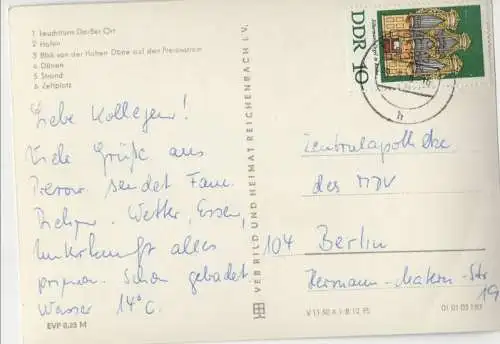 1 Leuchtturm Darßer Ort
2 Hafen
3 Blick von der Hohen Düne auf den Prerowstrom
4 Dünen
5 Strand
6 Zeltplatz
Liebe Kollegen!
Viele Grüße aus
Prerow sendet Fam.
Wetter, Essen,
Unterkunft alles
prima. Schon gebadet.
Wasser 14°C.
EVP 0,25 M
VEB BILD UND HEIMAT REICHENBACH I.V.
DDR 10
h
Zentralapotheke
des MDV
104 Berlin
Hermann-Matern-Str
19
V 11 50 A 1/B 12/75
01 01 03 183